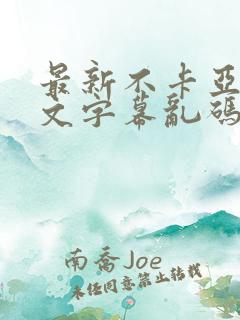 最新不卡亞
文字幕亂碼
南喬Joe
未经同意禁止转载